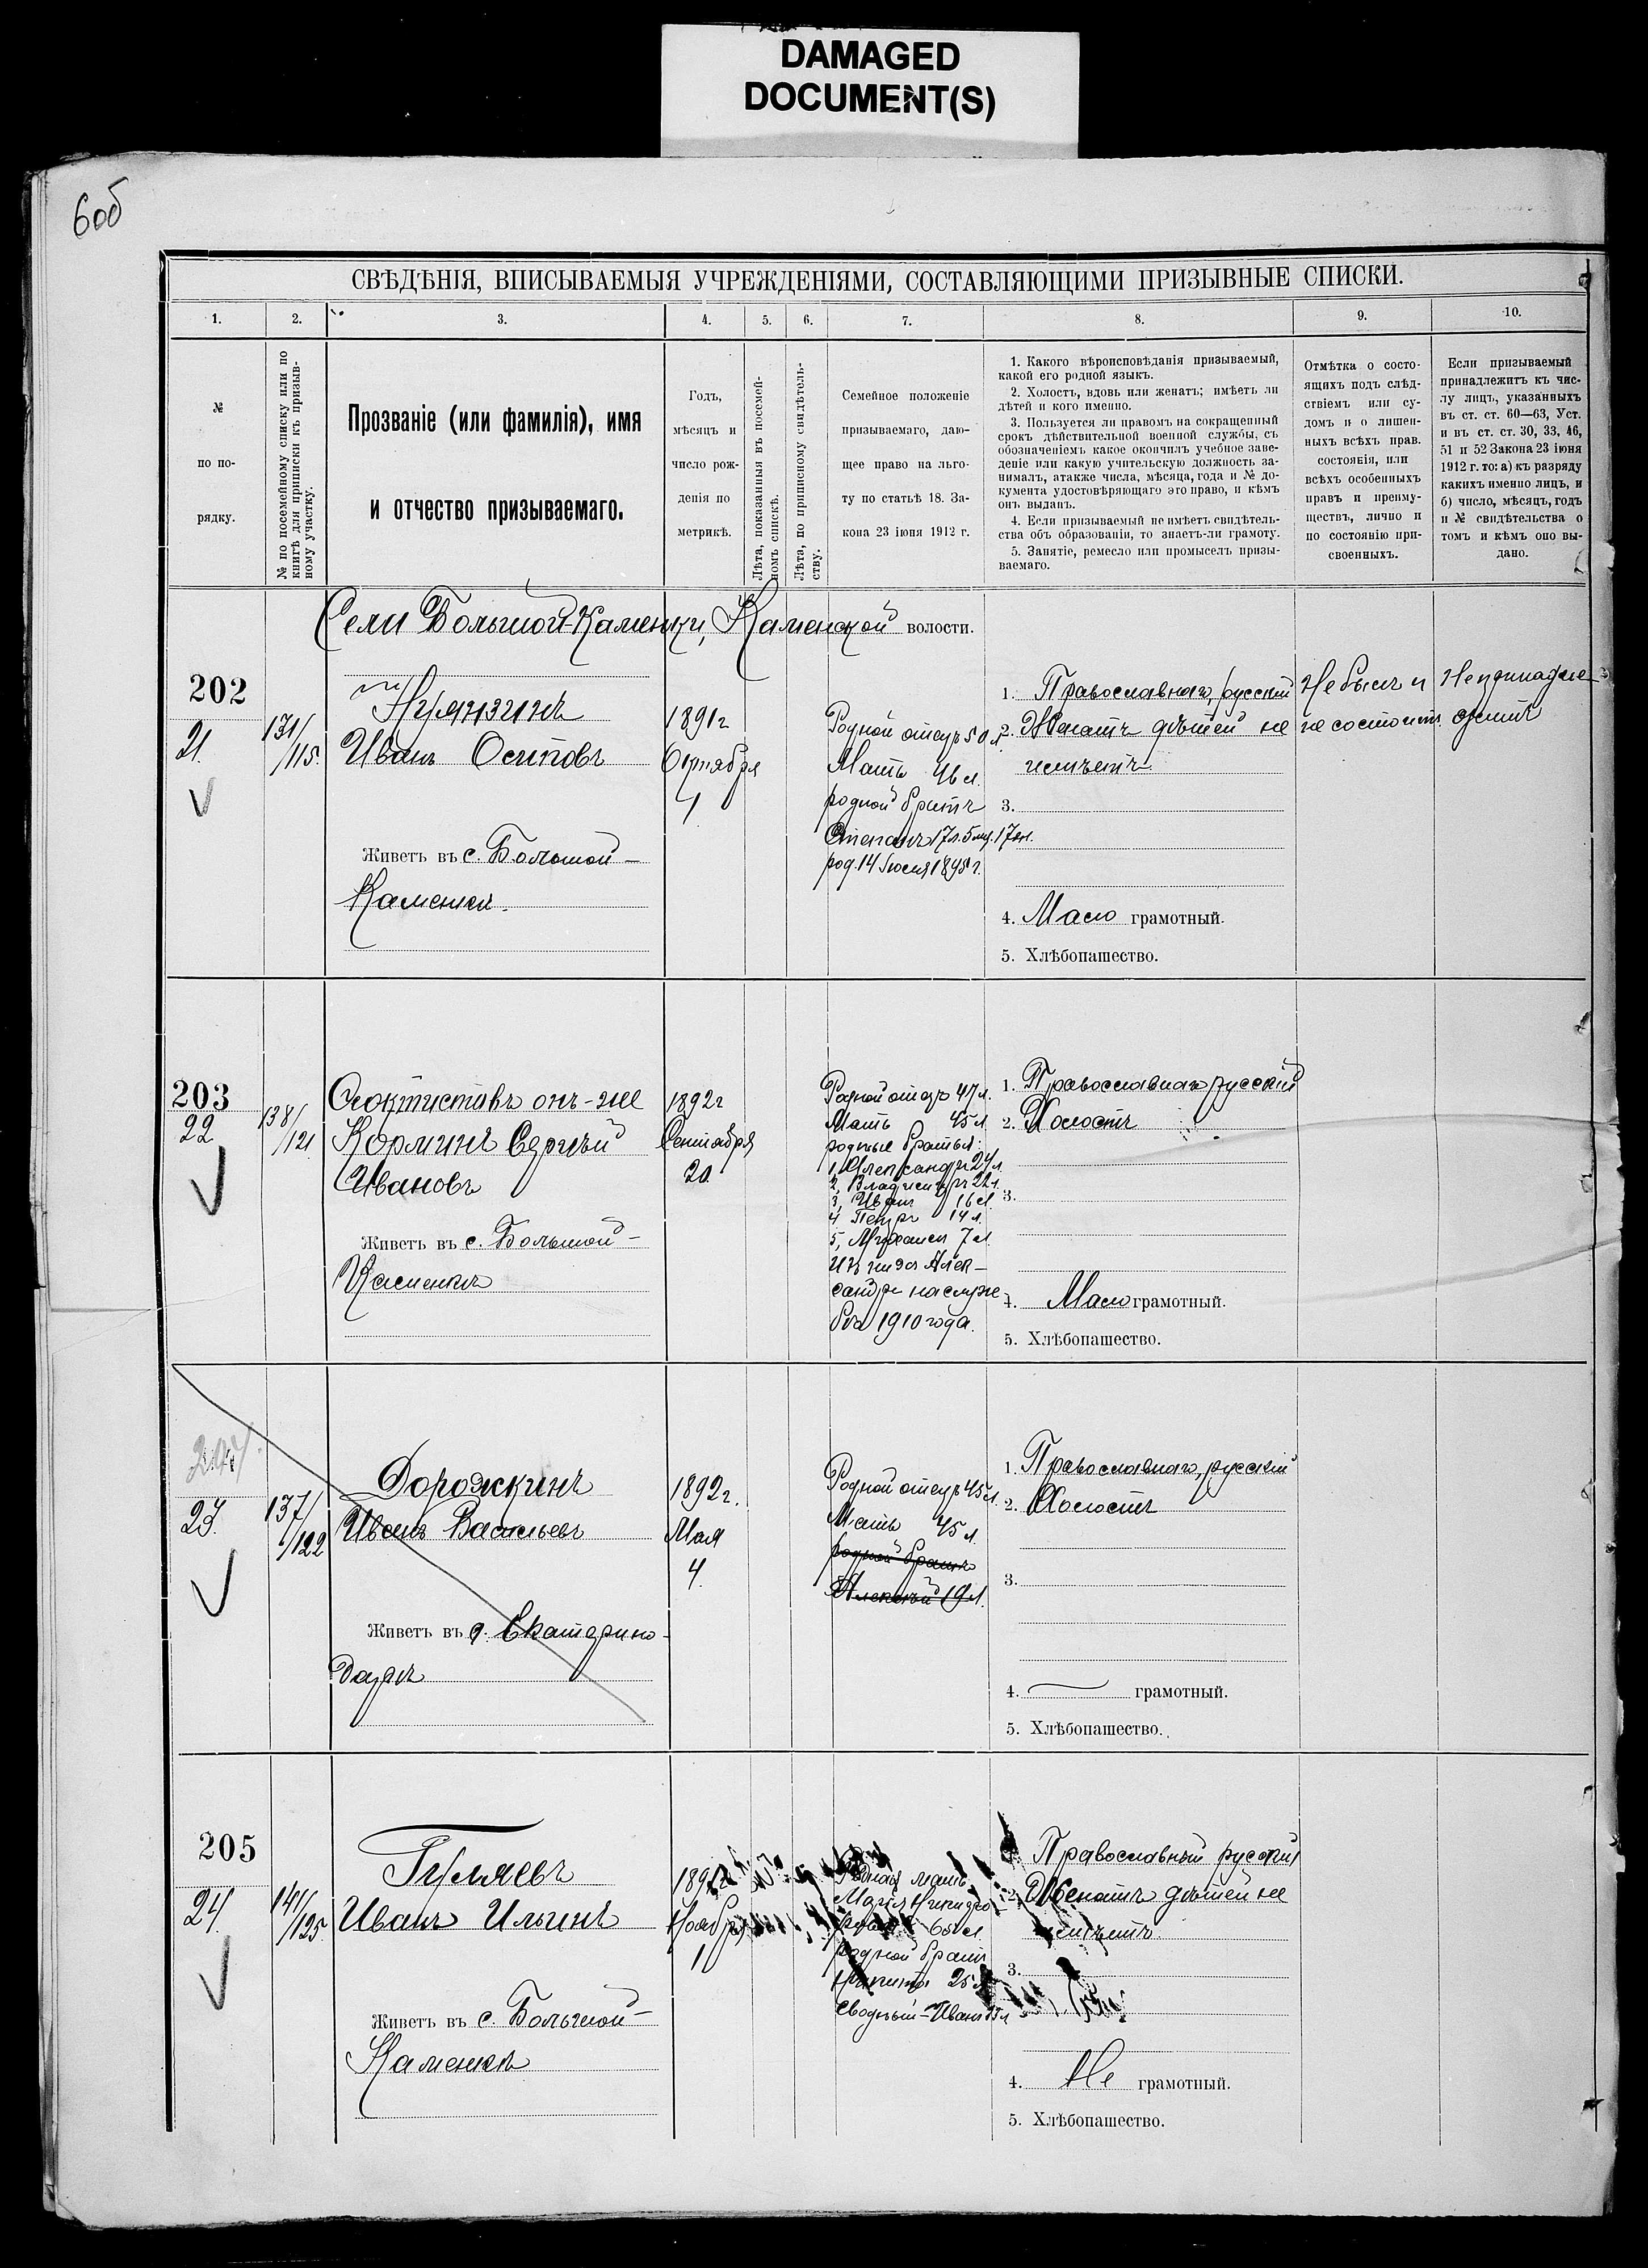 DAMAGED
DOCUMENT(S)
6об
СВѢДѢНІЯ, ВПИСЫВАЕМЫЯ УЧРЕЖДЕНІЯМИ, СОСТАВЛЯЮЩИМИ ПРИЗЫВНЫЕ СПИСКИ.
1. 2. 3. 4. 5. 6. 7. 8. 9. 10.
№
по по-
рядку.
№ по посемейному списку или по
книгѣ для приписки къ призыв-
ному участку.
Прозваніе (или фамилія), имя
и отчество призываемаго.
Годъ,
мѣсяцъ и
число рож-
денія по
метрикѣ.
Лѣта, показанныя въ посемей-
номъ спискѣ.
Лѣта, по приписному свидѣтель-
ству.
Семейное положеніе
призываемаго, даю-
щее право на льго-
ту по статьѣ 18. За-
кона 23 іюня 1912 г.
1. Какого вѣроисповѣданія призываемый,
какой его родной языкъ.
2. Холостъ, вдовъ или женатъ; имѣетъ ли
дѣтей и кого именно.
3. Пользуется ли правомъ на сокращенный
срокъ дѣйствительной военной службы, съ
обозначеніемъ какое окончилъ учебное заве-
деніе или какую учительскую должность за-
нималъ, атакже числа, мѣсяца, года и № до-
кумента удостовѣряющаго это право, и кѣмъ
онъ выданъ.
4. Если призываемый не имѣетъ свидѣтель-
ства объ образованіи, то знаетъ-ли грамоту.
5. Занятіе, ремесло или промыселъ призы-
ваемаго.
Отмѣтка о состо-
ящихъ подъ слѣд-
ствіемъ или су-
домъ и о лишен-
ныхъ всѣхъ прав.
состоянія, или
всѣхъ особенныхъ
правъ и преиму-
ществъ, лично и
по состоянію при-
своенныхъ.
Если призываемый
принадлежитъ къ чис-
лу лицъ, указанныхъ
въ ст. ст. 60—63, Уст.
и въ ст. ст. 30, 33, 46,
51 и 52 Закона 23 іюня
1912 г. то: а) къ разряду
какихъ именно лицъ, и
б) число, мѣсяцъ, годъ
и № свидѣтельства о
томъ и кѣмъ оно вы-
дано.
Села Большой-Каменки, Каменской волости.
202
21.
131/
/115.
Нуянзинъ
Иванъ Осиповъ
Живетъ въ с. Большой-
Каменкѣ.
1891г
Октября
1
Родной отецъ 50 л.
Мать 46 л.
родной братъ
Степанъ 17 л. 5 мц. 17 дн.
род. 14 Іюля 1895 г.
1. Православнаго, русскій
2. Женатъ дѣтей не
имѣетъ.
3.
4. Мало грамотный.
5. Хлѣбопашество.
Не былъ и
не состоитъ.
Не принадле-
житъ
203
22
138/
/121
Феоктистовъ онъ-же
Кормилинъ Сергѣй
Ивановъ
Живетъ въ с. Большой-
Каменкѣ
1892г
Сентября
20
Родной отецъ 47 л.
Мать 45 л
родные братья:
1, Александръ 24 л.
2, Владиміръ 22 л.
3, Иванъ 16 л.
4 Петръ 14 л.
5, Михаилъ 7 л.
Изъ нихъ Алек-
сандръ на служ-
бѣ 1910 года.
1. Православнаго русскій
2. Холостъ
3.
4. Мало грамотный.
5. Хлѣбопашество.
204
23.
137/
/122
Дорожкинъ
Иванъ Васильевъ
Живетъ въ г. Екатерино-
дарѣ
1892г.
Мая
4.
Родной отецъ 45 л.
Мать 45 л
родной братъ
Алексѣй 19 л.
1. Православнаго, русскій
2. Холостъ
3.
4. грамотный.
5. Хлѣбопашество.
205
24.
141/
/125.
Гуляевъ
Иванъ Ильинъ
Живетъ въ с. Большой-
Каменкѣ
Ноября
1
Родная мать
Марія
65 л.
родной братъ
Никита 25 л
Сводный-Иванъ
Православный русскій
2. Женатъ дѣтей не
имѣетъ.
3.
4. Не грамотный.
5. Хлѣбопашество.